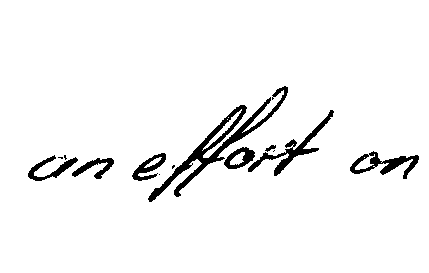 an effort on